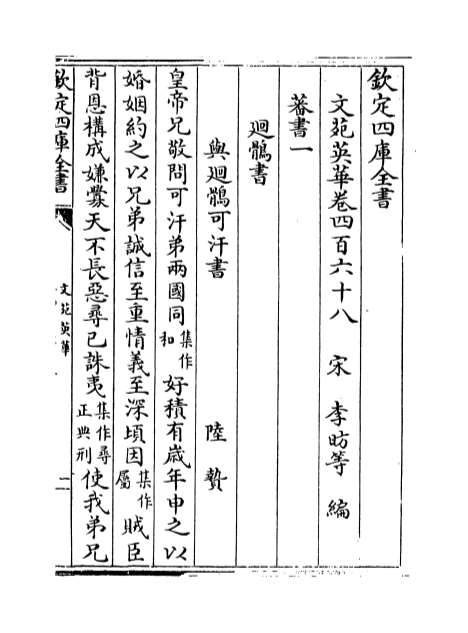 欽定四庫全書
文苑英華卷四百六十八 宋 李昉等 編
蕃書一
廻鶻書
與廻鶻可汗書 陸贄
皇帝兄敬問可汗弟兩國同集作和好積有歲年申之以
婚姻約之以兄弟誠信至重情義至深頃因集作屬賊臣
背恩構成嫌釁天不長惡尋已誅夷集作尋正典刑使我弟兄
欽定四庫全書
文苑英華